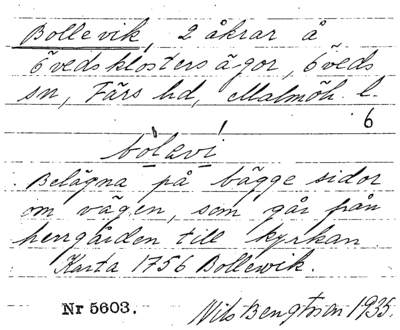 Bollevik, 2 åkrar å
Öveds klosters ägor, Öveds
sn, Färs hd, Malmöh. l.
6
bolavi
Belägna på bägge sidor
om vägen, som går från
herrgården till kyrkan.
Karta 1756 Bollewik.
Nr 5603.
Nils Bengtsson 1935.